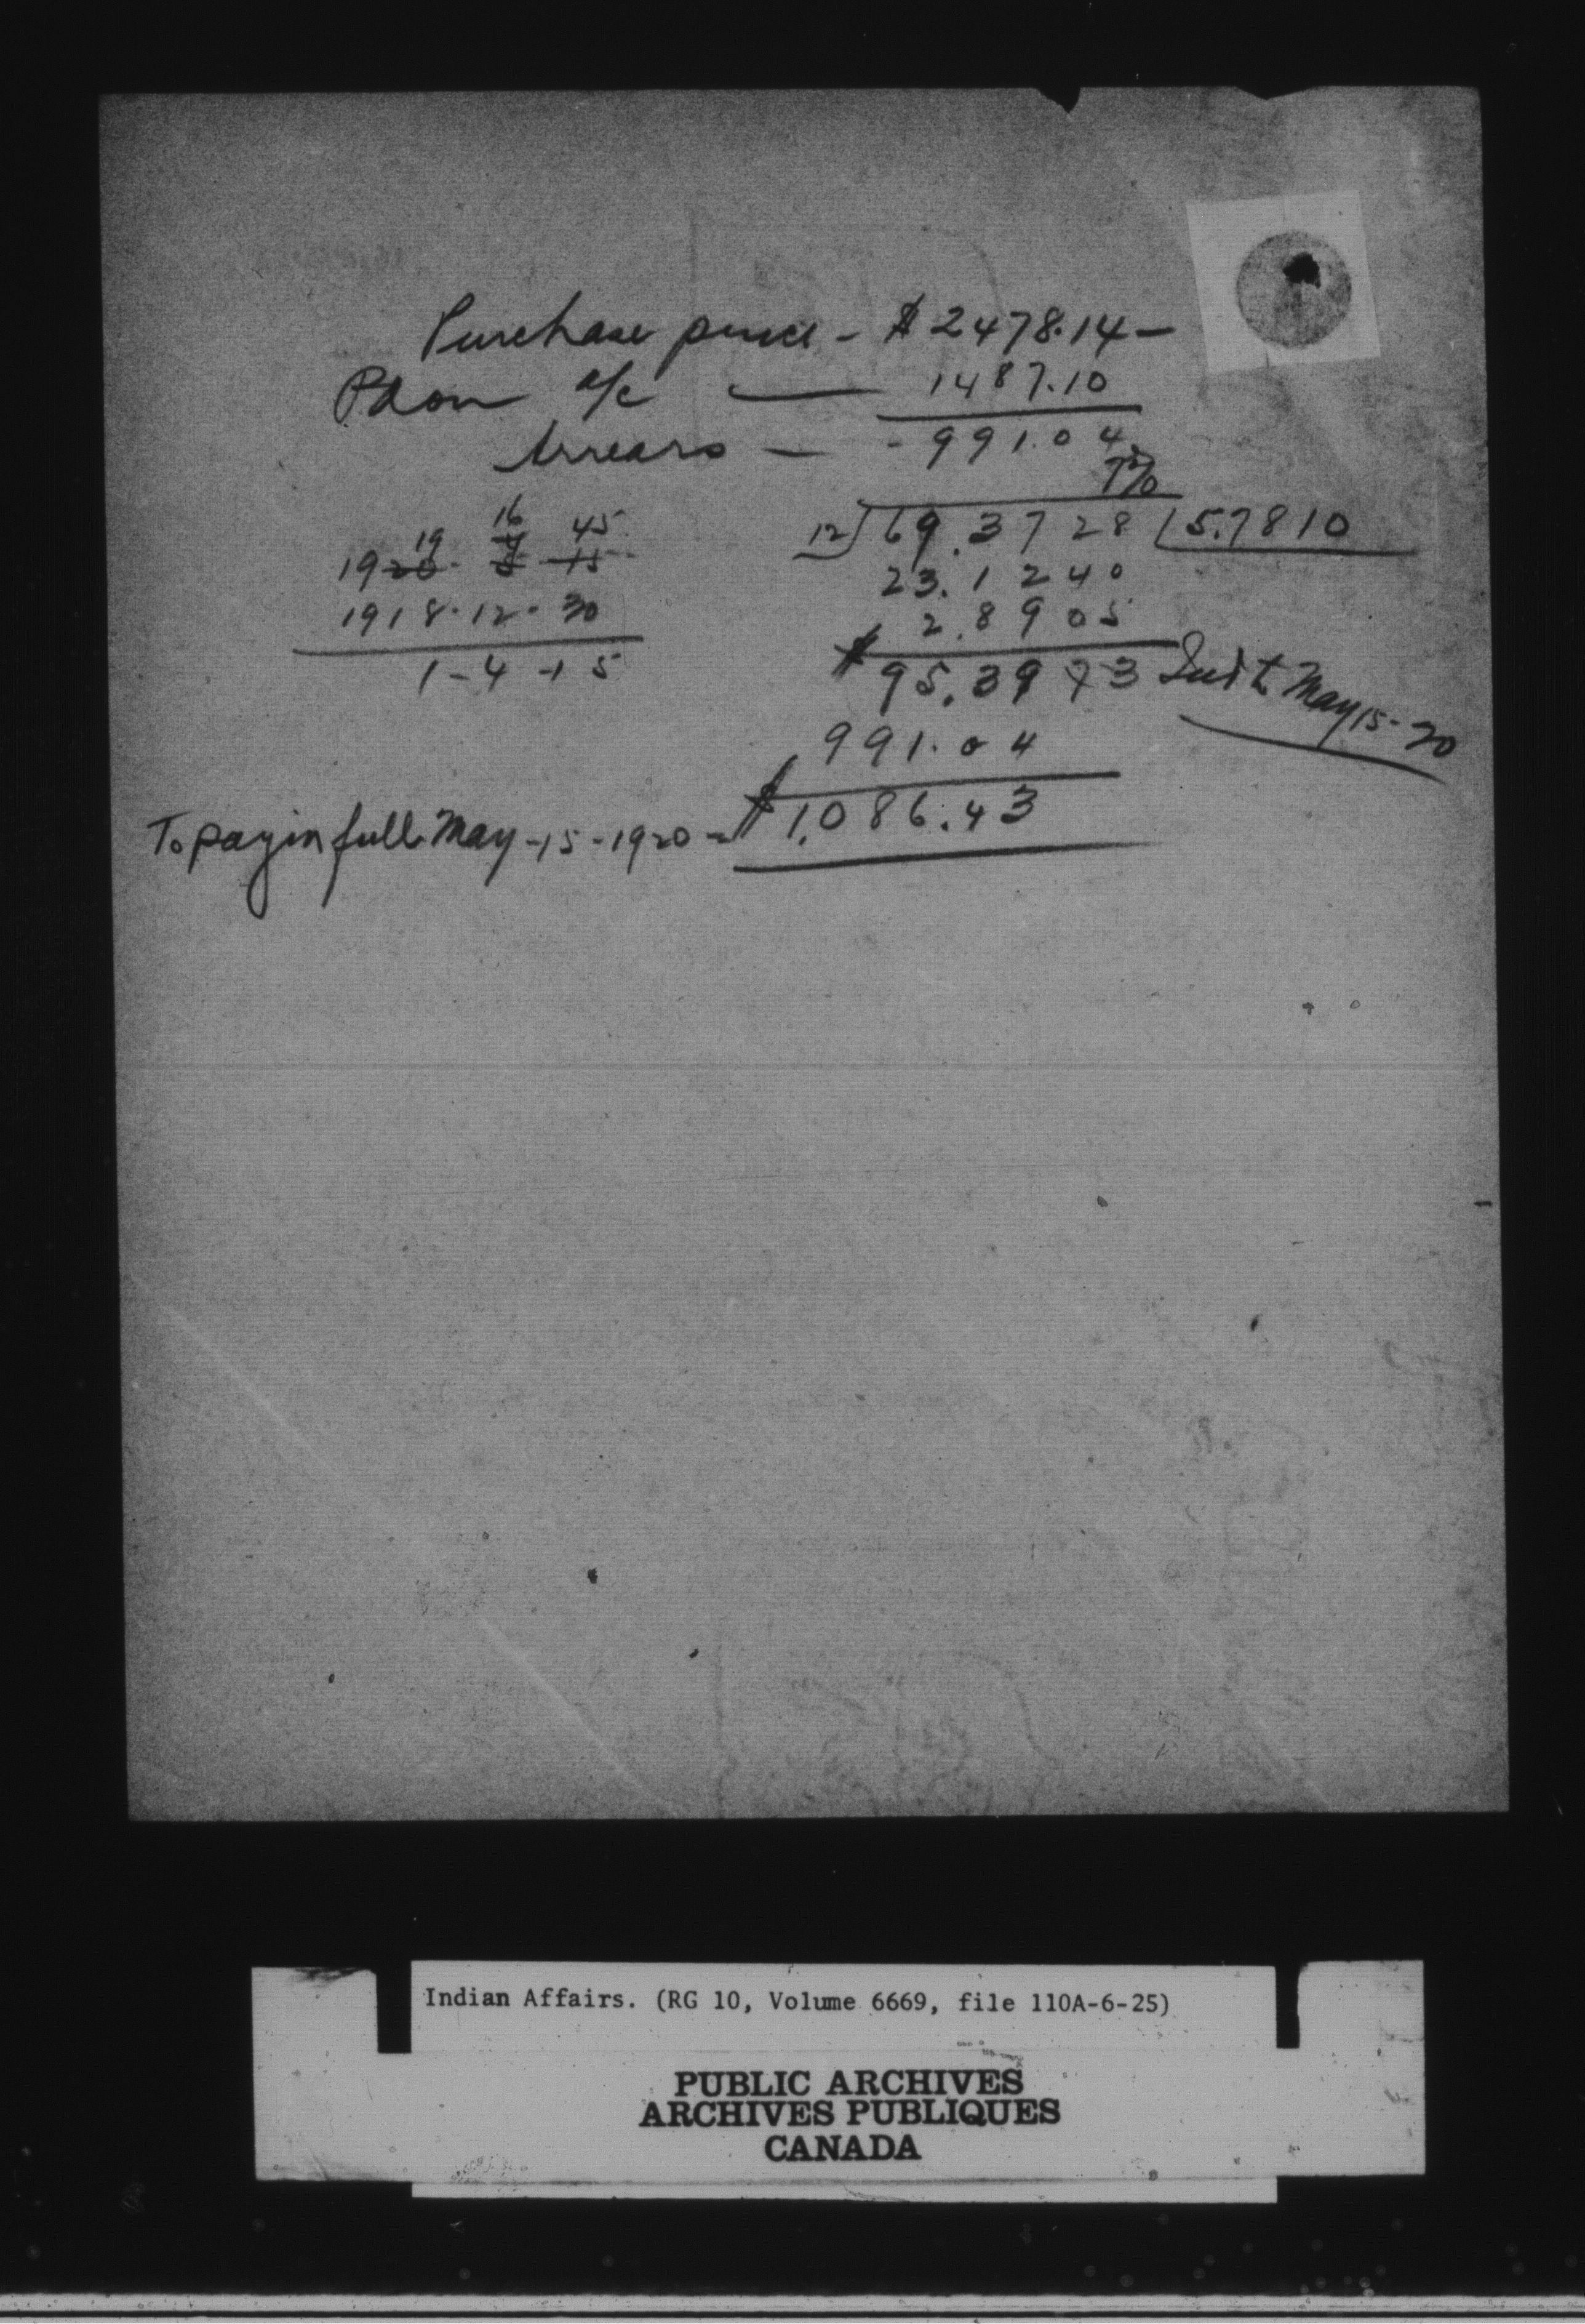 Purchase price - $2478.14 -
Pd on a/c — 1487.10
Arrears — - 991.04
7%
12) 69.3728 (5.7810
23.1240
2.8905
$ 95.3973 Int to May 15 - 20
991.04
To pay in full May - 15 - 1920 = $1,086.43
19 16 45
1920 . 4 5 15
1918 . 12 . 30
1 - 4 - 15
Indian Affairs. (RG 10, Volume 6669, file 110A-6-25)
PUBLIC ARCHIVES
ARCHIVES PUBLIQUES
CANADA